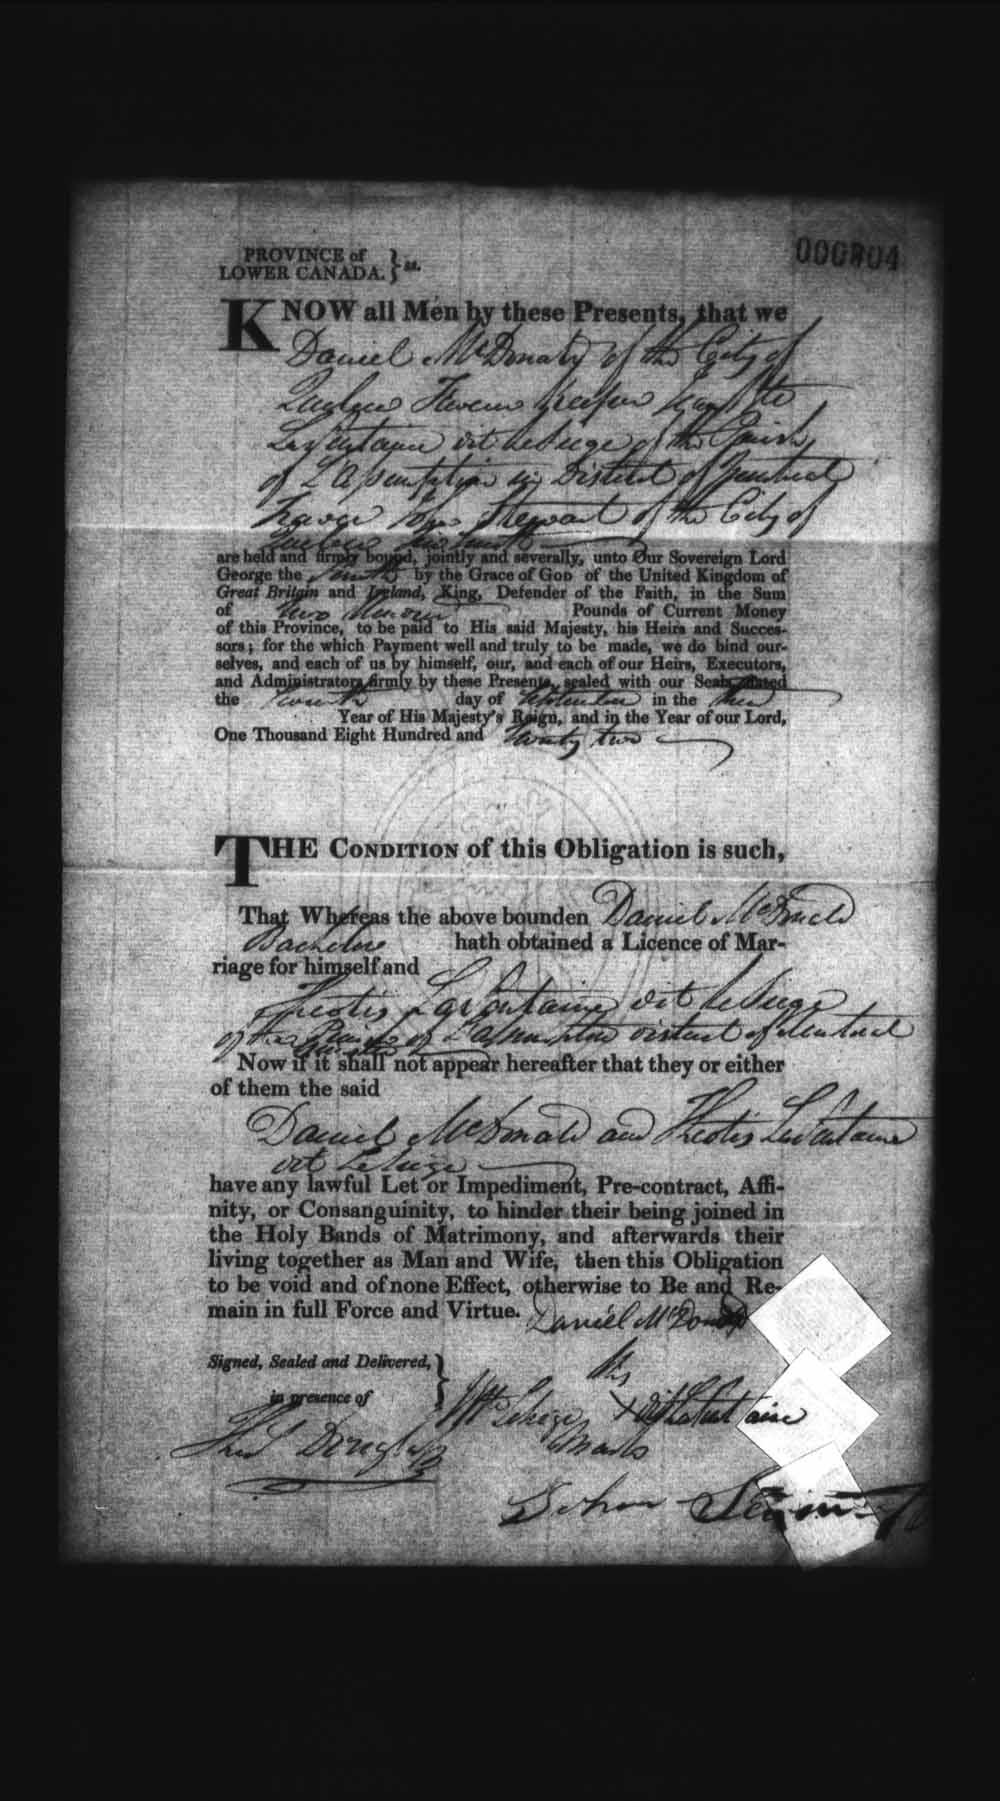 000804
PROVINCE of
LOWER CANADA. } ss.
KNOW all Men by these Presents, that we
Daniel McDonald of the City of
Quebec Tavern Keeper
LaFontaine dit LeSiege of the Parish
of L'Assomption in District of Montreal
John Stewart of the City of
Quebec
are held and firmly bound, jointly and severally, unto Our Sovereign Lord
George the Fourth by the Grace of GOD of the United Kingdom of
Great Britain and Ireland, King, Defender of the Faith, in the Sum
of two Hundred Pounds of Current Money
of this Province, to be paid to His said Majesty, his Heirs and Succes-
sors; for the which Payment well and truly to be made, we do bind our-
selves, and each of us by himself, our, and each of our Heirs, Executors,
and Administrators firmly by these Presents, sealed with our Seals dated
the day of September in the third
Year of His Majesty's Reign, and in the Year of our Lord,
One Thousand Eight Hundred and Twenty two
THE CONDITION of this Obligation is such,
That Whereas the above bounden Daniel McDonald
Bachelor hath obtained a Licence of Mar-
riage for himself and
Theotis LaFontaine dit LeSiege
of the Parish of L'Assomption District of Montreal
Now if it shall not appear hereafter that they or either
of them the said
Daniel McDonald and Theotis LaFontaine
dit LeSiege
have any lawful Let or Impediment, Pre-contract, Affi-
nity, or Consanguinity, to hinder their being joined in
the Holy Bands of Matrimony, and afterwards their
living together as Man and Wife, then this Obligation
to be void and of none Effect, otherwise to Be and Re-
main in full Force and Virtue.
Daniel McDonald
Signed, Sealed and Delivered, }
in presence of
his
LeSiege X dit Lafontaine
Mark
Thos Douglass
John